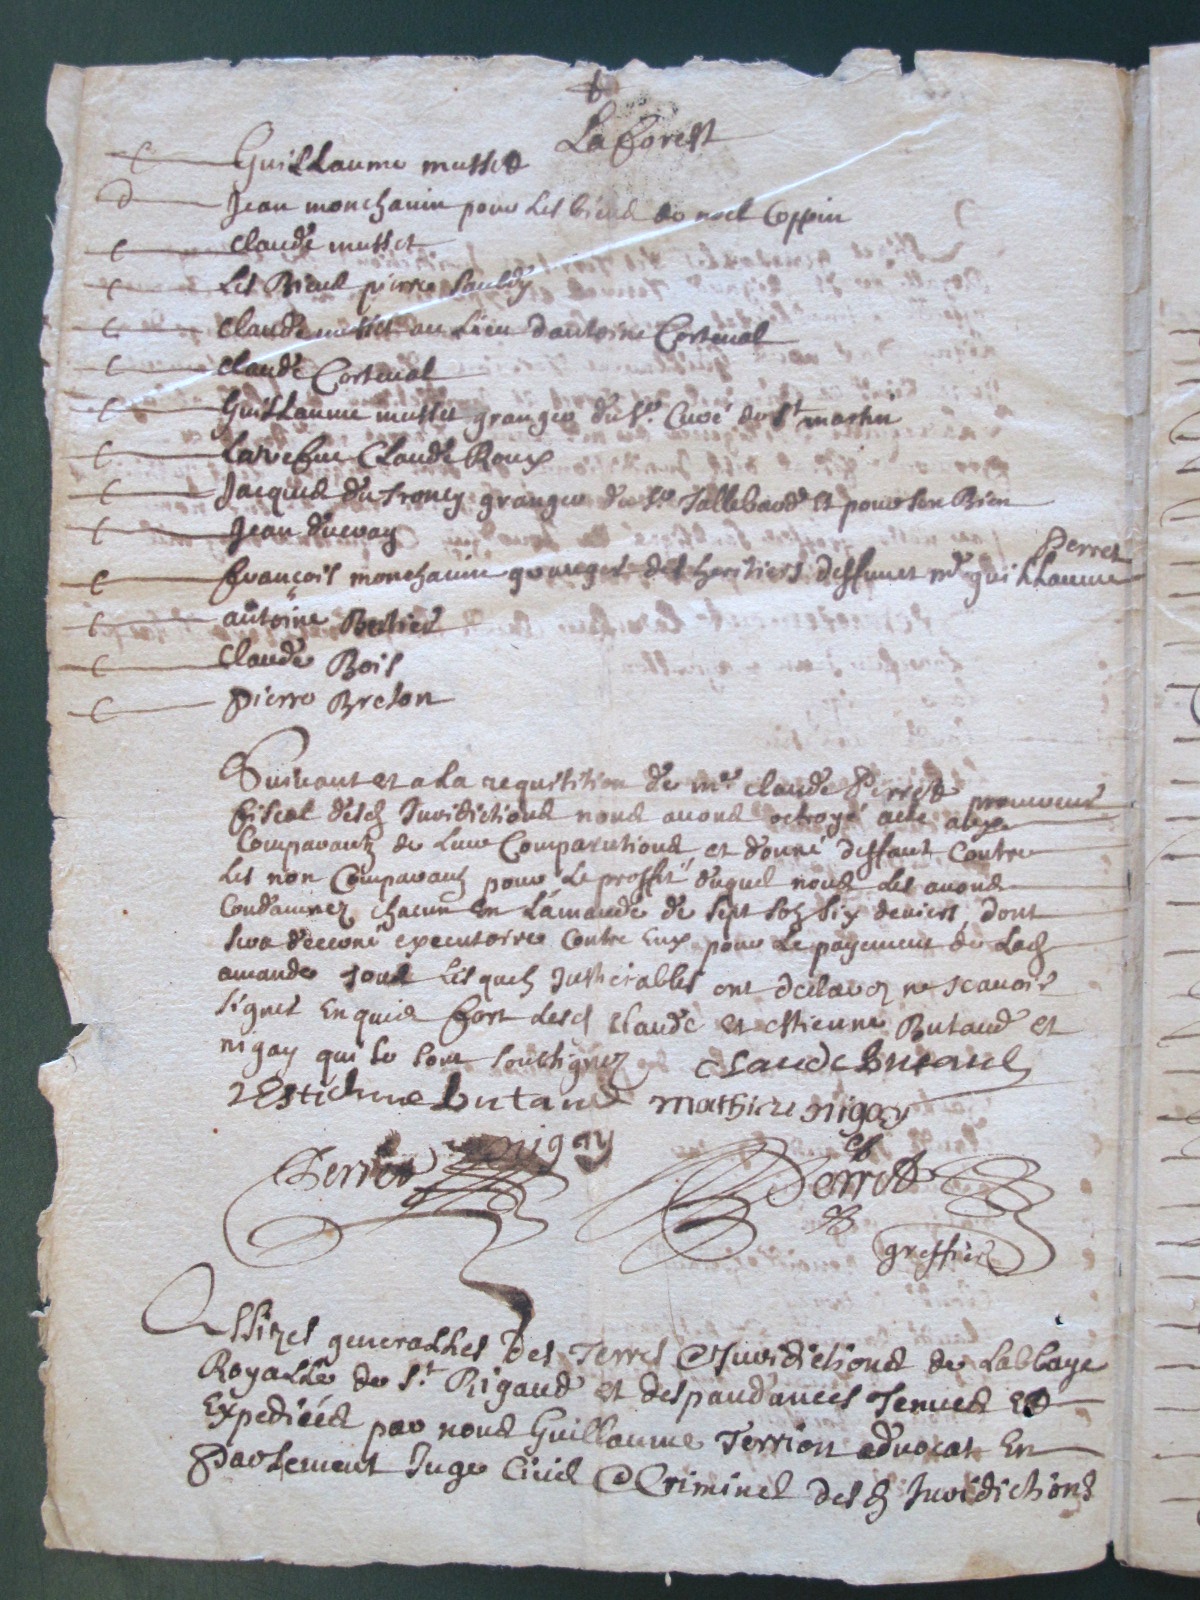 La forest
c Guillaume musset
d Jean monchanin pour les biens de noel Coppin
c claude musset
c les Biens pierre
c claude musset au Lieu dantoine Corteval
c claude Corteval
c Guillaume musset granger du sr. Curé de st martin
c La vefve Claude Roux
c Jacques du troncy granger du sr. Tallebard et pour son Bien
c Jean
Perret
c françois monchanin granger des heritiers deffunct me guillaume
c antoine
c claude Bois
c pierre Breton
Suivant et a La requisition de me claude Perret procureur
fiscal desd Jurisdictions nous avons octroyé acte aux
Comparantz de Leur Comparutions et donné deffaut Contre
Les non Comparantz pour Le proffit duquel nous Les avons
Condamnez chacun en Lamande de sept solz six deniers dont
sera decerné executoire Contre Eux pour Le payement de Lad
amande tous Lesquelz Justiciables ont declarez ne scavoir
signer Enquis fort lesd Claude et estienne Butaud et
nigay qui se sont soubsignez Claude Butaud
Estiehne butaud mathieu nigay
nigay
Perret Perret
greffier
Assizes generalles des Terres et Jurisdictions de Labbaye
Royalle de st. Rigaud et despandances Tenues et
Expediées par nous Guillaume Terrion advocat En
Parlement Juge Civil et Criminel desd Jurisdictions